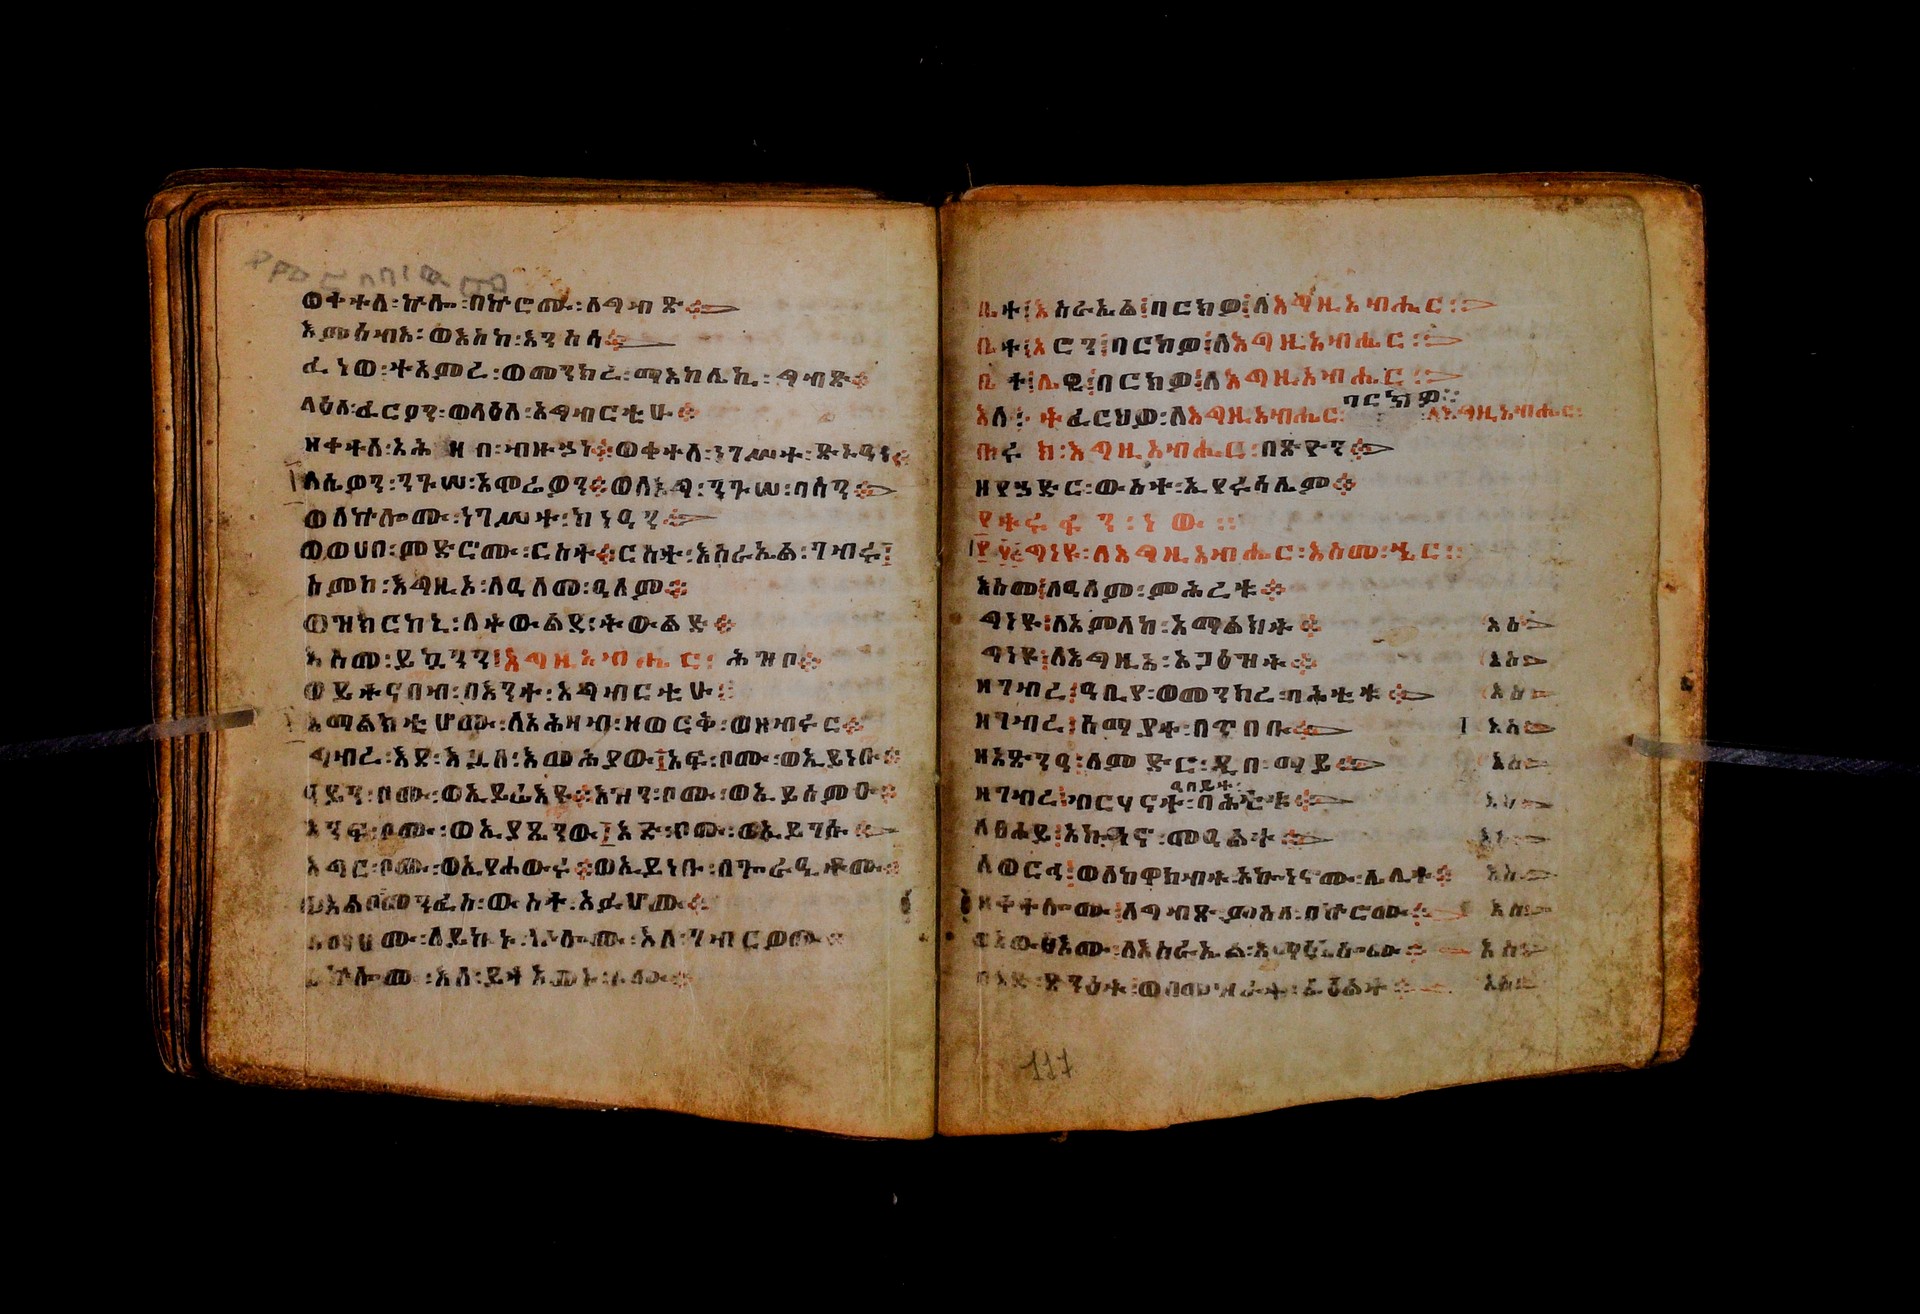 ወቀተለ፡ ኵሎ፡ በኵሮሙ፡ ለግብጽ።
እምሰብእ፡ ወእስከ፡ እንስሳ።
ፈነወ፡ ተአምረ፡ ወመንክረ፡ ማእከሌኪ፡ ግብጽ።
ላዕለ፡ ፈርዖን፡ ወላዕለ፡ አግብርቲሁ።
ዘቀተለ፡ አሕዛበ፡ ብዙኃነ። ወቀተለ፡ ነገሥተ፡ ጽኑዓነ።
ለሴዎን፡ ንጉሠ፡ አሞሬዎን። ወለአግ፡ ንጉሠ፡ ባሳን።
ወለኵሎሙ፡ ነገሥተ፡ ከነዓን።
ወወሀበ፡ ምድሮሙ፡ ርስተ። ርስተ፡ እስራኤል፡ ገብሩ።
ስምከ፡ እግዚኦ፡ ለዓለመ፡ ዓለም።
ወዝክርከኒ፡ ለትውልደ፡ ትውልድ።
እስመ፡ ይኴንን፡ እግዚአብሔር፡ ሕዝቦ።
ወይትናበብ፡ በእንተ፡ አግብርቲሁ።
አማልክቲሆሙ፡ ለአሕዛብ፡ ዘወርቅ፡ ወዘብሩር።
ግብረ፡ እደ፡ እጓለ፡ እመሕያው። አፍ፡ ቦሙ፡ ወኢይነቡ።
ዓይን፡ ቦሙ፡ ወኢይሬእዩ። እዝን፡ ቦሙ፡ ወኢይሰምዑ።
አንፍ፡ ቦሙ፡ ወኢያጼንው። እድ፡ ቦሙ፡ ወኢይገሱ።
እግር፡ ቦሙ፡ ወኢየሐውሩ። ወኢይነቡ፡ በጐራዒቶሙ።
ወአልቦ መንፈስ፡ ውስተ፡ አፉሆሙ።
ከማሆሙ፡ ለይኩኑ፡ ኵሎሙ፡ እለ፡ ገብርዎሙ።
ወኵሎሙ፡ እለ፡ ይትአመኑ፡ ቦሙ።
ቤተ፡ እስራኤል፡ ባርክዎ፡ ለእግዚአብሔር፡
ቤተ፡ አሮን፡ ባርክዎ፡ ለእግዚአብሔር፡
ቤተ፡ ሌዊ፡ ባርክዎ፡ ለእግዚአብሔር፡
እለ፡ ትፈርህዎ፡ ለእግዚአብሔር፡ ባርክዎ፡ ለእግዚአብሔር፡
ቡሩክ፡ እግዚአብሔር፡ በጽዮን።
ዘየኃድር፡ ውስተ፡ ኢየሩሳሌም።
ግነዩ፡ ለእግዚአብሔር፡ እስመ፡ ኄር፡
እስመ፡ ለዓለም፡ ምሕረቱ።
ግነዩ፡ ለአምላከ፡ አማልክት። እስ
ግነዩ፡ ለእግዚአ፡ አጋዕዝት። እስ
ዘገብረ፡ ዓቢየ፡ ወመንክረ፡ ባሕቲቱ። እስ
ዘገብረ፡ ሰማያተ፡ በጥበቡ። እስ
ዘአጽንዓ፡ ለምድር፡ ዲበ፡ ማይ። እስ
ዘገብረ፡ ብርሃናተ፡ ዓበይተ፡ በሕቲቱ። እስ
ለፀሐይ፡ አኰነኖ፡ መዓልተ። እስ
ለወርኅ፡ ወለከዋክብት፡ አኰነኖሙ፡ ሌሊተ። እስ
ዘቀተሎሙ፡ ለግብጽ፡ ምስለ፡ በኵሮሙ። እስ
ወአውፅኦሙ፡ ለእስራኤል፡ እማእከሎሙ። እስ
በእድ፡ ጽንዕት፡ ወበመዝራዕት፡ ልዕልት። እስ
117